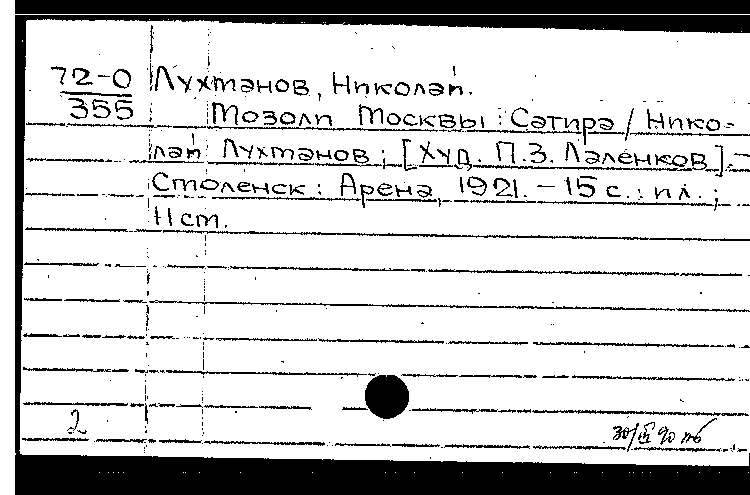 72-0 Лухтанов, Николай.
355 Мозоли Москвы : Сатира / Нико-
лай Лухтанов ; [Худ. П.З. Лаленков]. -
Смоленск : Арена, 1921. - 15 с. : ил. ;
11 cm.
2